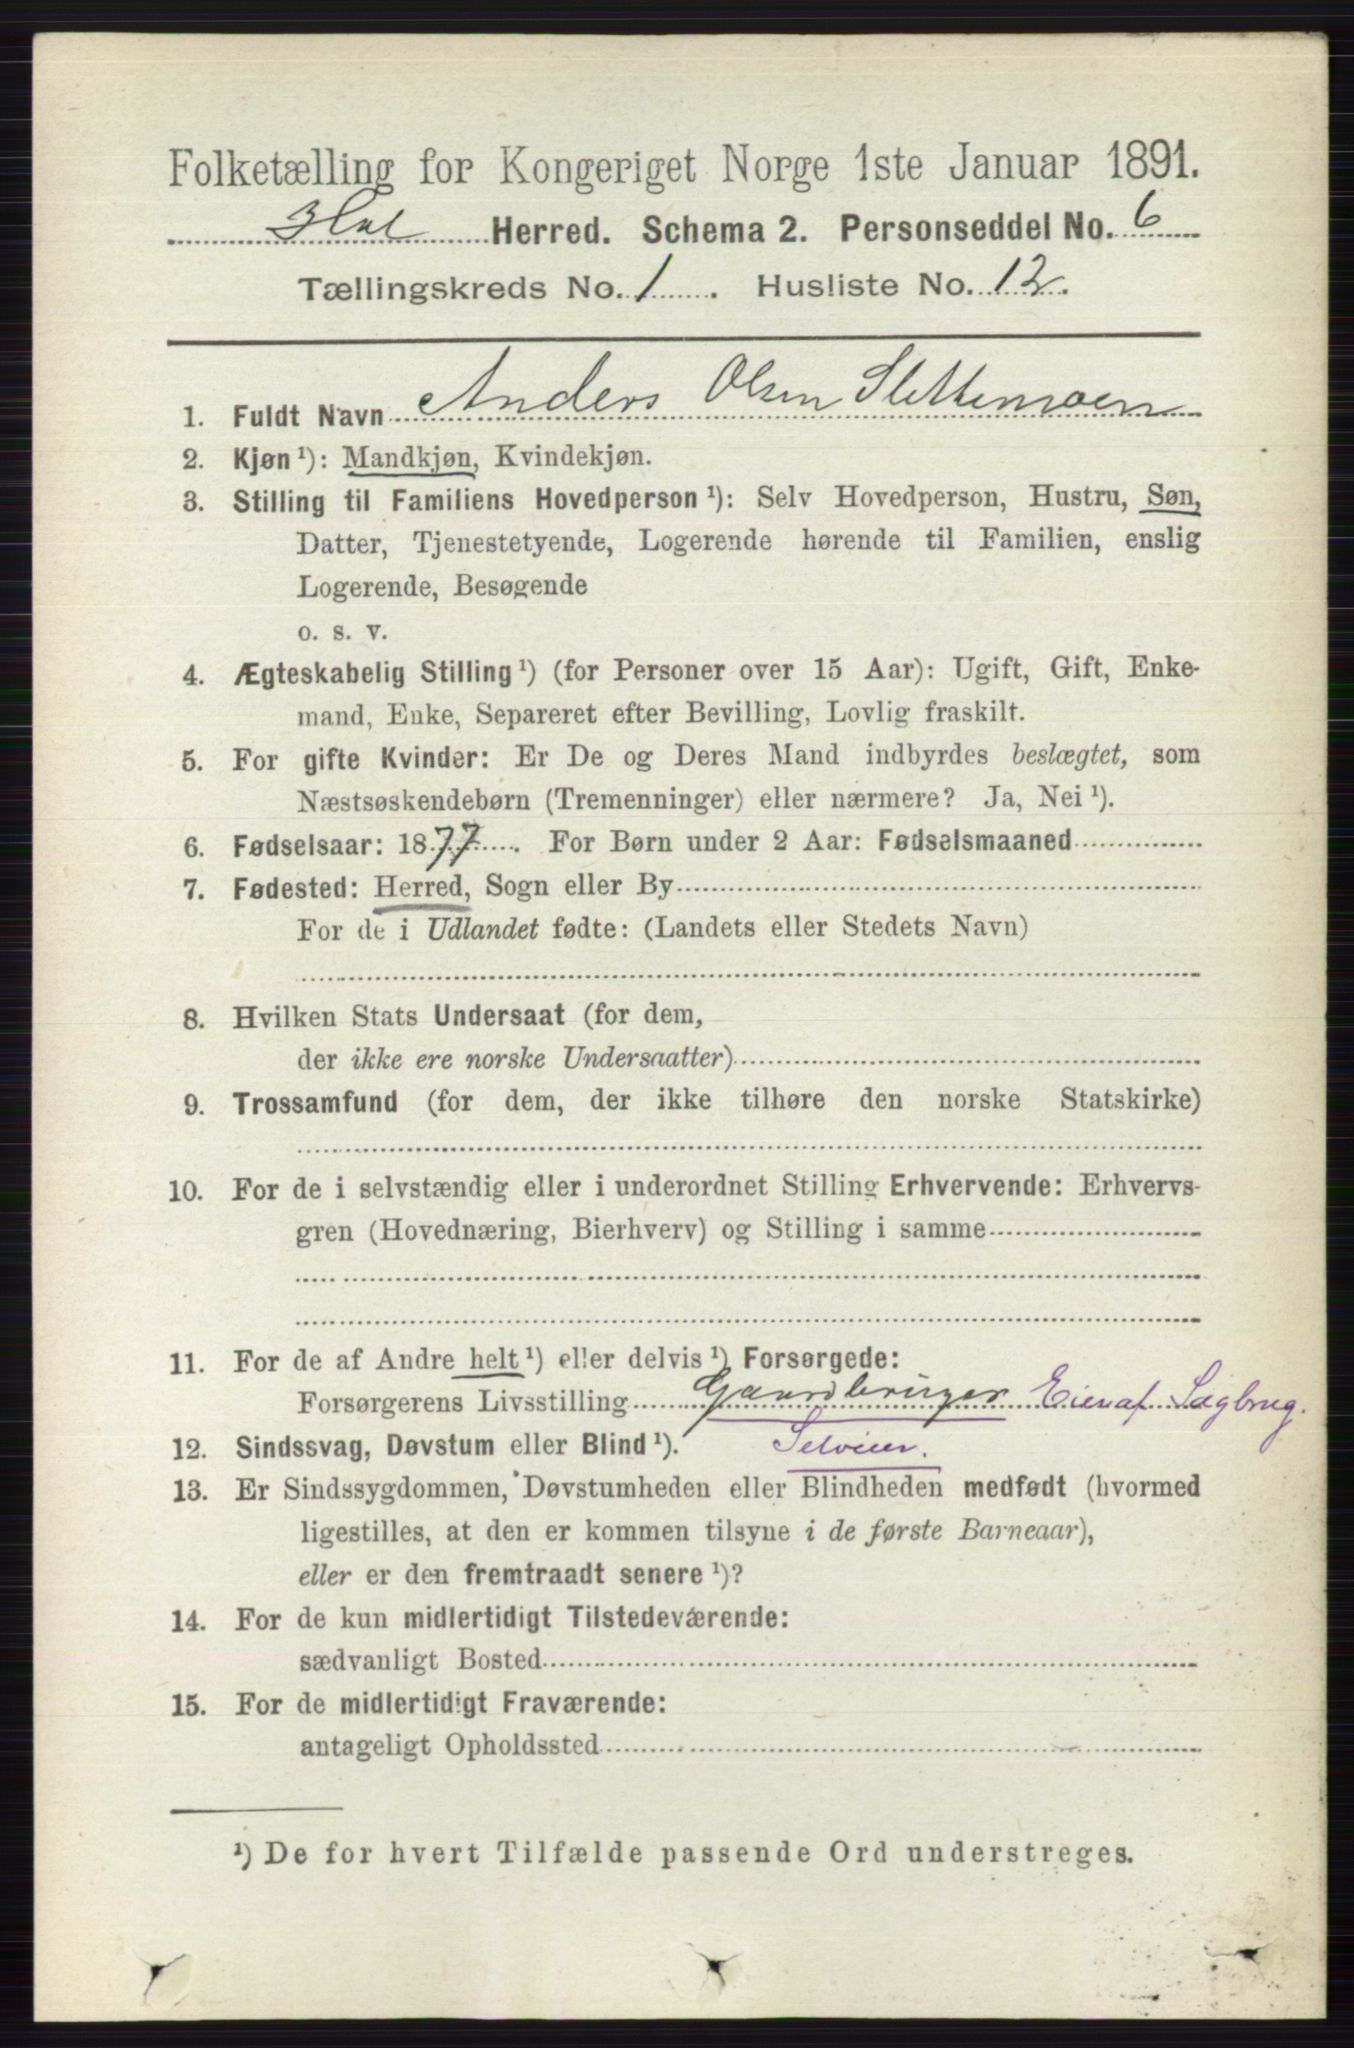 Folketælling for Kongeriget Norge 1ste Januar 1891.
Hol Herred. Schema 2. Personseddel No. 6
Tællingskreds No. 1. Husliste No. 12.
1. Fuldt Navn Anders Olsen Slettemoen
2. Kjøn ¹): Mandkjøn, Kvindekjøn.
3. Stilling til Familiens Hovedperson ¹): Selv Hovedperson, Hustru, Søn,
Datter, Tjenestetyende, Logerende hørende til Familien, enslig
Logerende, Besøgende
o. s. v.
4. Ægteskabelig Stilling ¹) (for Personer over 15 Aar): Ugift, Gift, Enke-
mand, Enke, Separeret efter Bevilling, Lovlig fraskilt.
5. For gifte Kvinder: Er De og Deres Mand indbyrdes beslægtet, som
Næstsøskendebørn (Tremenninger) eller nærmere? Ja, Nei ¹).
6. Fødselsaar: 1877. For Børn under 2 Aar: Fødselsmaaned
7. Fødested: Herred, Sogn eller By
For de i Udlandet fødte: (Landets eller Stedets Navn)
8. Hvilken Stats Undersaat (for dem,
der ikke ere norske Undersaatter)
9. Trossamfund (for dem, der ikke tilhøre den norske Statskirke)
10. For de i selvstændig eller i underordnet Stilling Erhvervende: Erhvervs-
gren (Hovednæring, Bierhverv) og Stilling i samme
11. For de af Andre helt ¹) eller delvis ¹) Forsørgede:
Forsørgerens Livsstilling Gaardbruger Eier af Sagbrug.
12. Sindssvag, Døvstum eller Blind ¹). Selveier.
13. Er Sindssygdommen, Døvstumheden eller Blindheden medfødt (hvormed
ligestilles, at den er kommen tilsyne i de første Barneaar),
eller er den fremtraadt senere ¹)?
14. For de kun midlertidigt Tilstedeværende:
sædvanligt Bosted
15. For de midlertidigt Fraværende:
antageligt Opholdssted
¹) De for hvert Tilfælde passende Ord understreges.